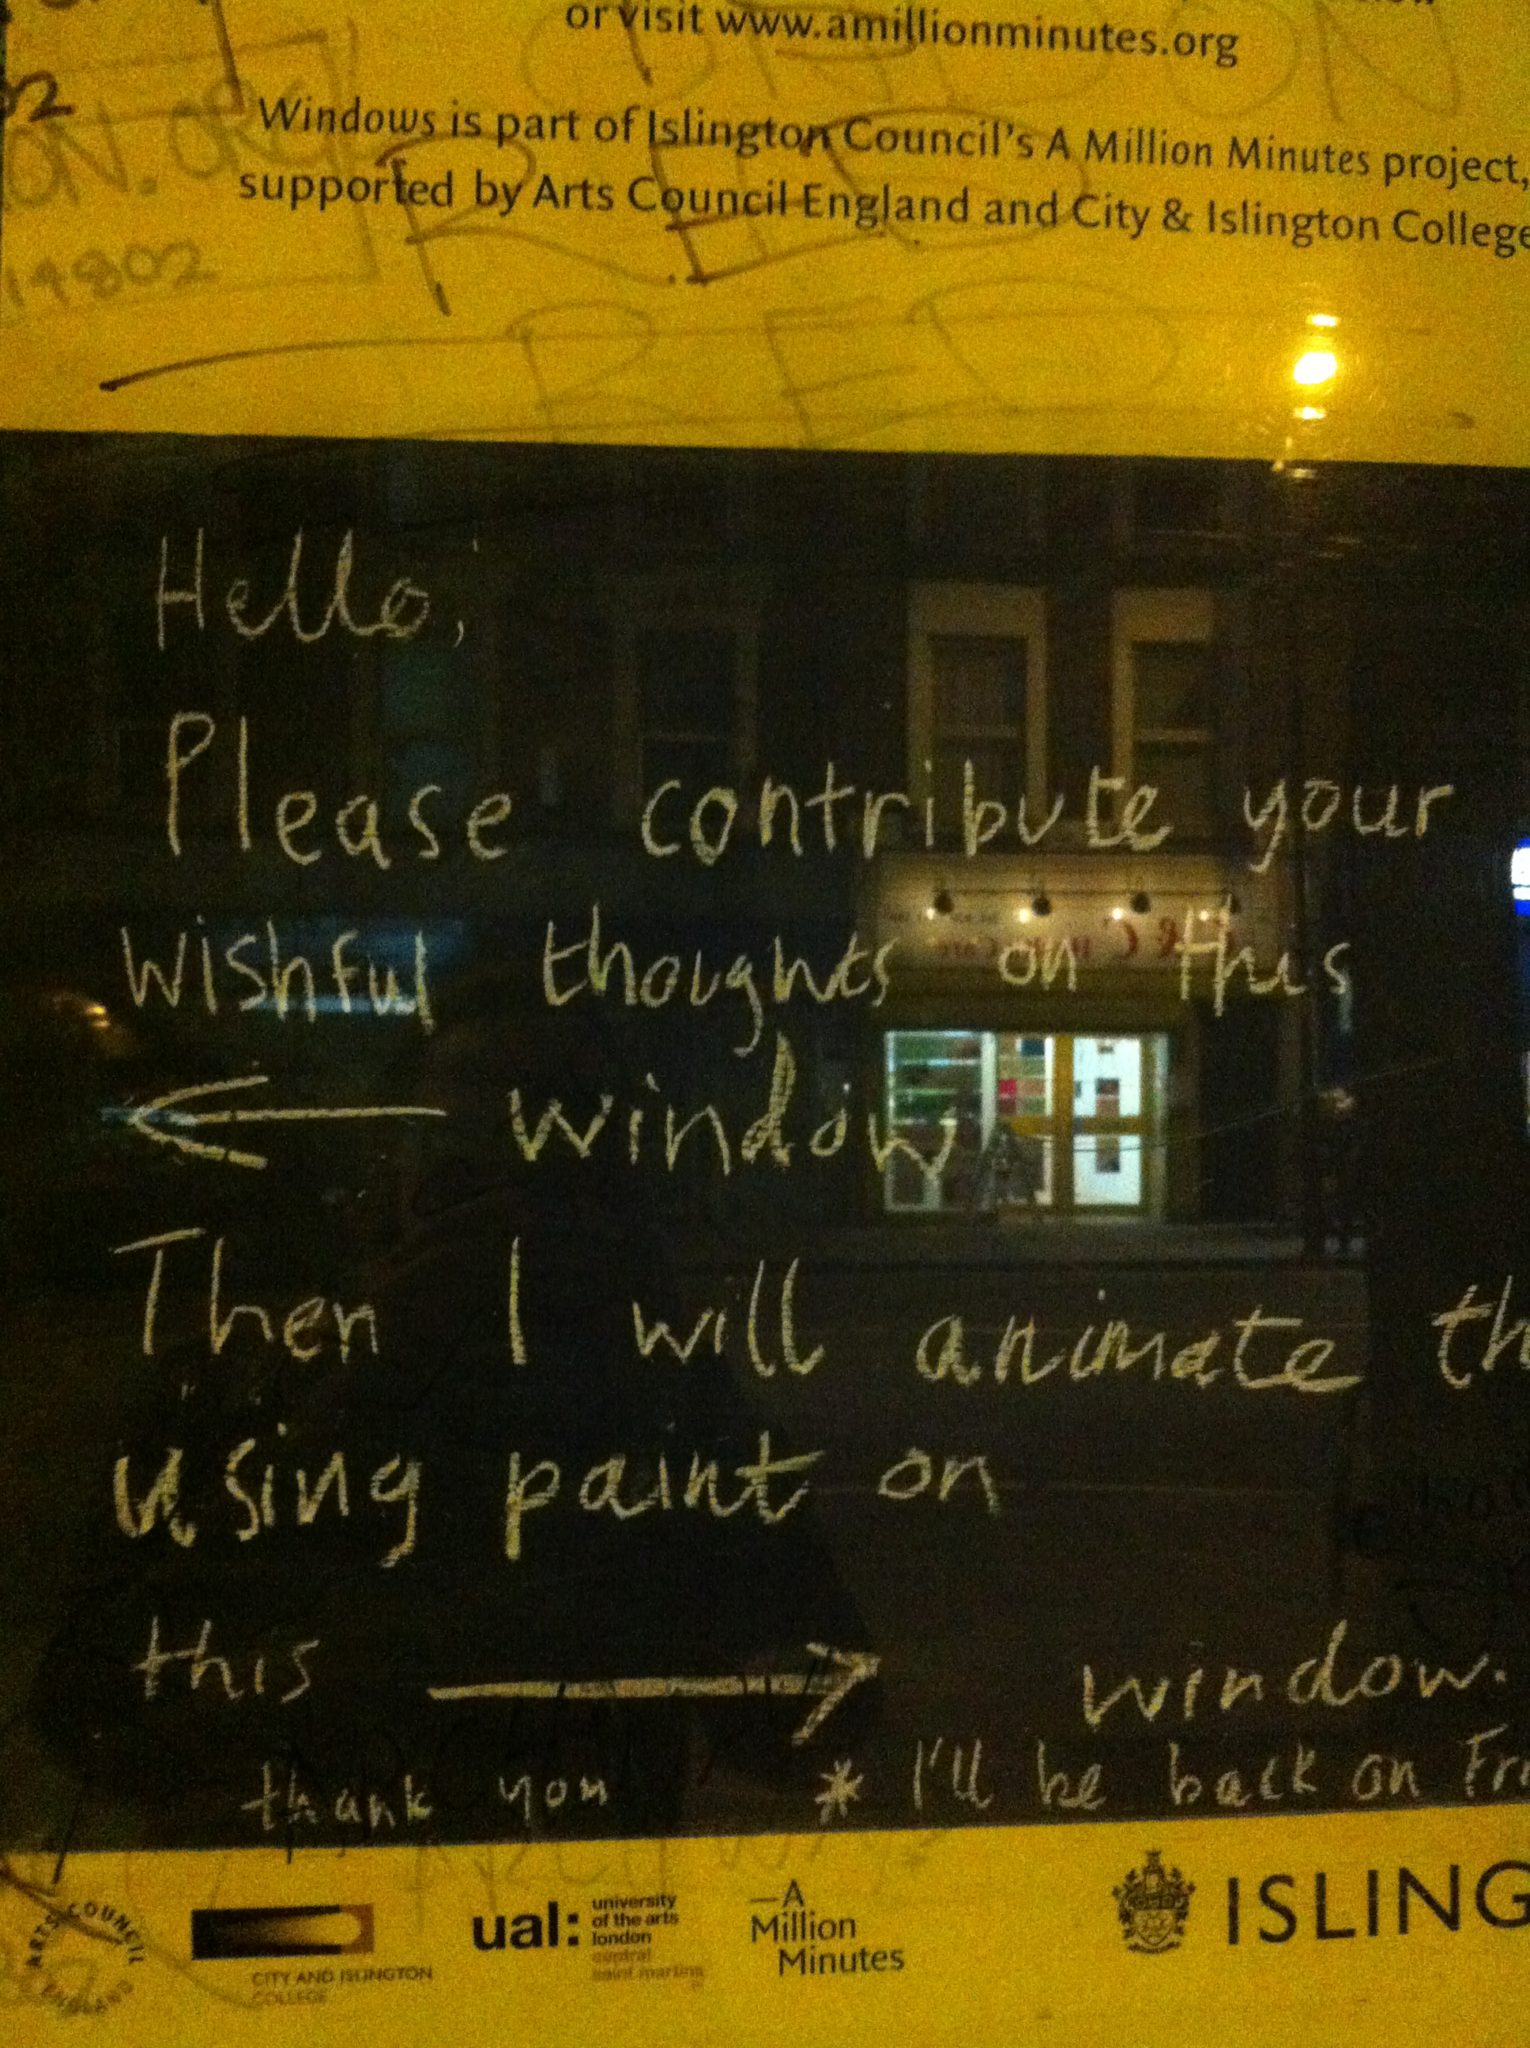 or visit www.amillionminutes.org
Windows is part of Islington Council's A Million Minutes project,
supported by Arts Council England and City & Islington College
ON. ORG
14802
RED
RED
Hello,
Please contribute your
wishful thoughts on this
← window
Then I will animate th
using paint on
this → window.
thank you * I'll be back on Fr
ARTS COUNCIL ENGLAND
CITY AND ISLINGTON
COLLEGE
ual:
university
of the arts
london
central
saint martins
—A
Million
Minutes
ISLING